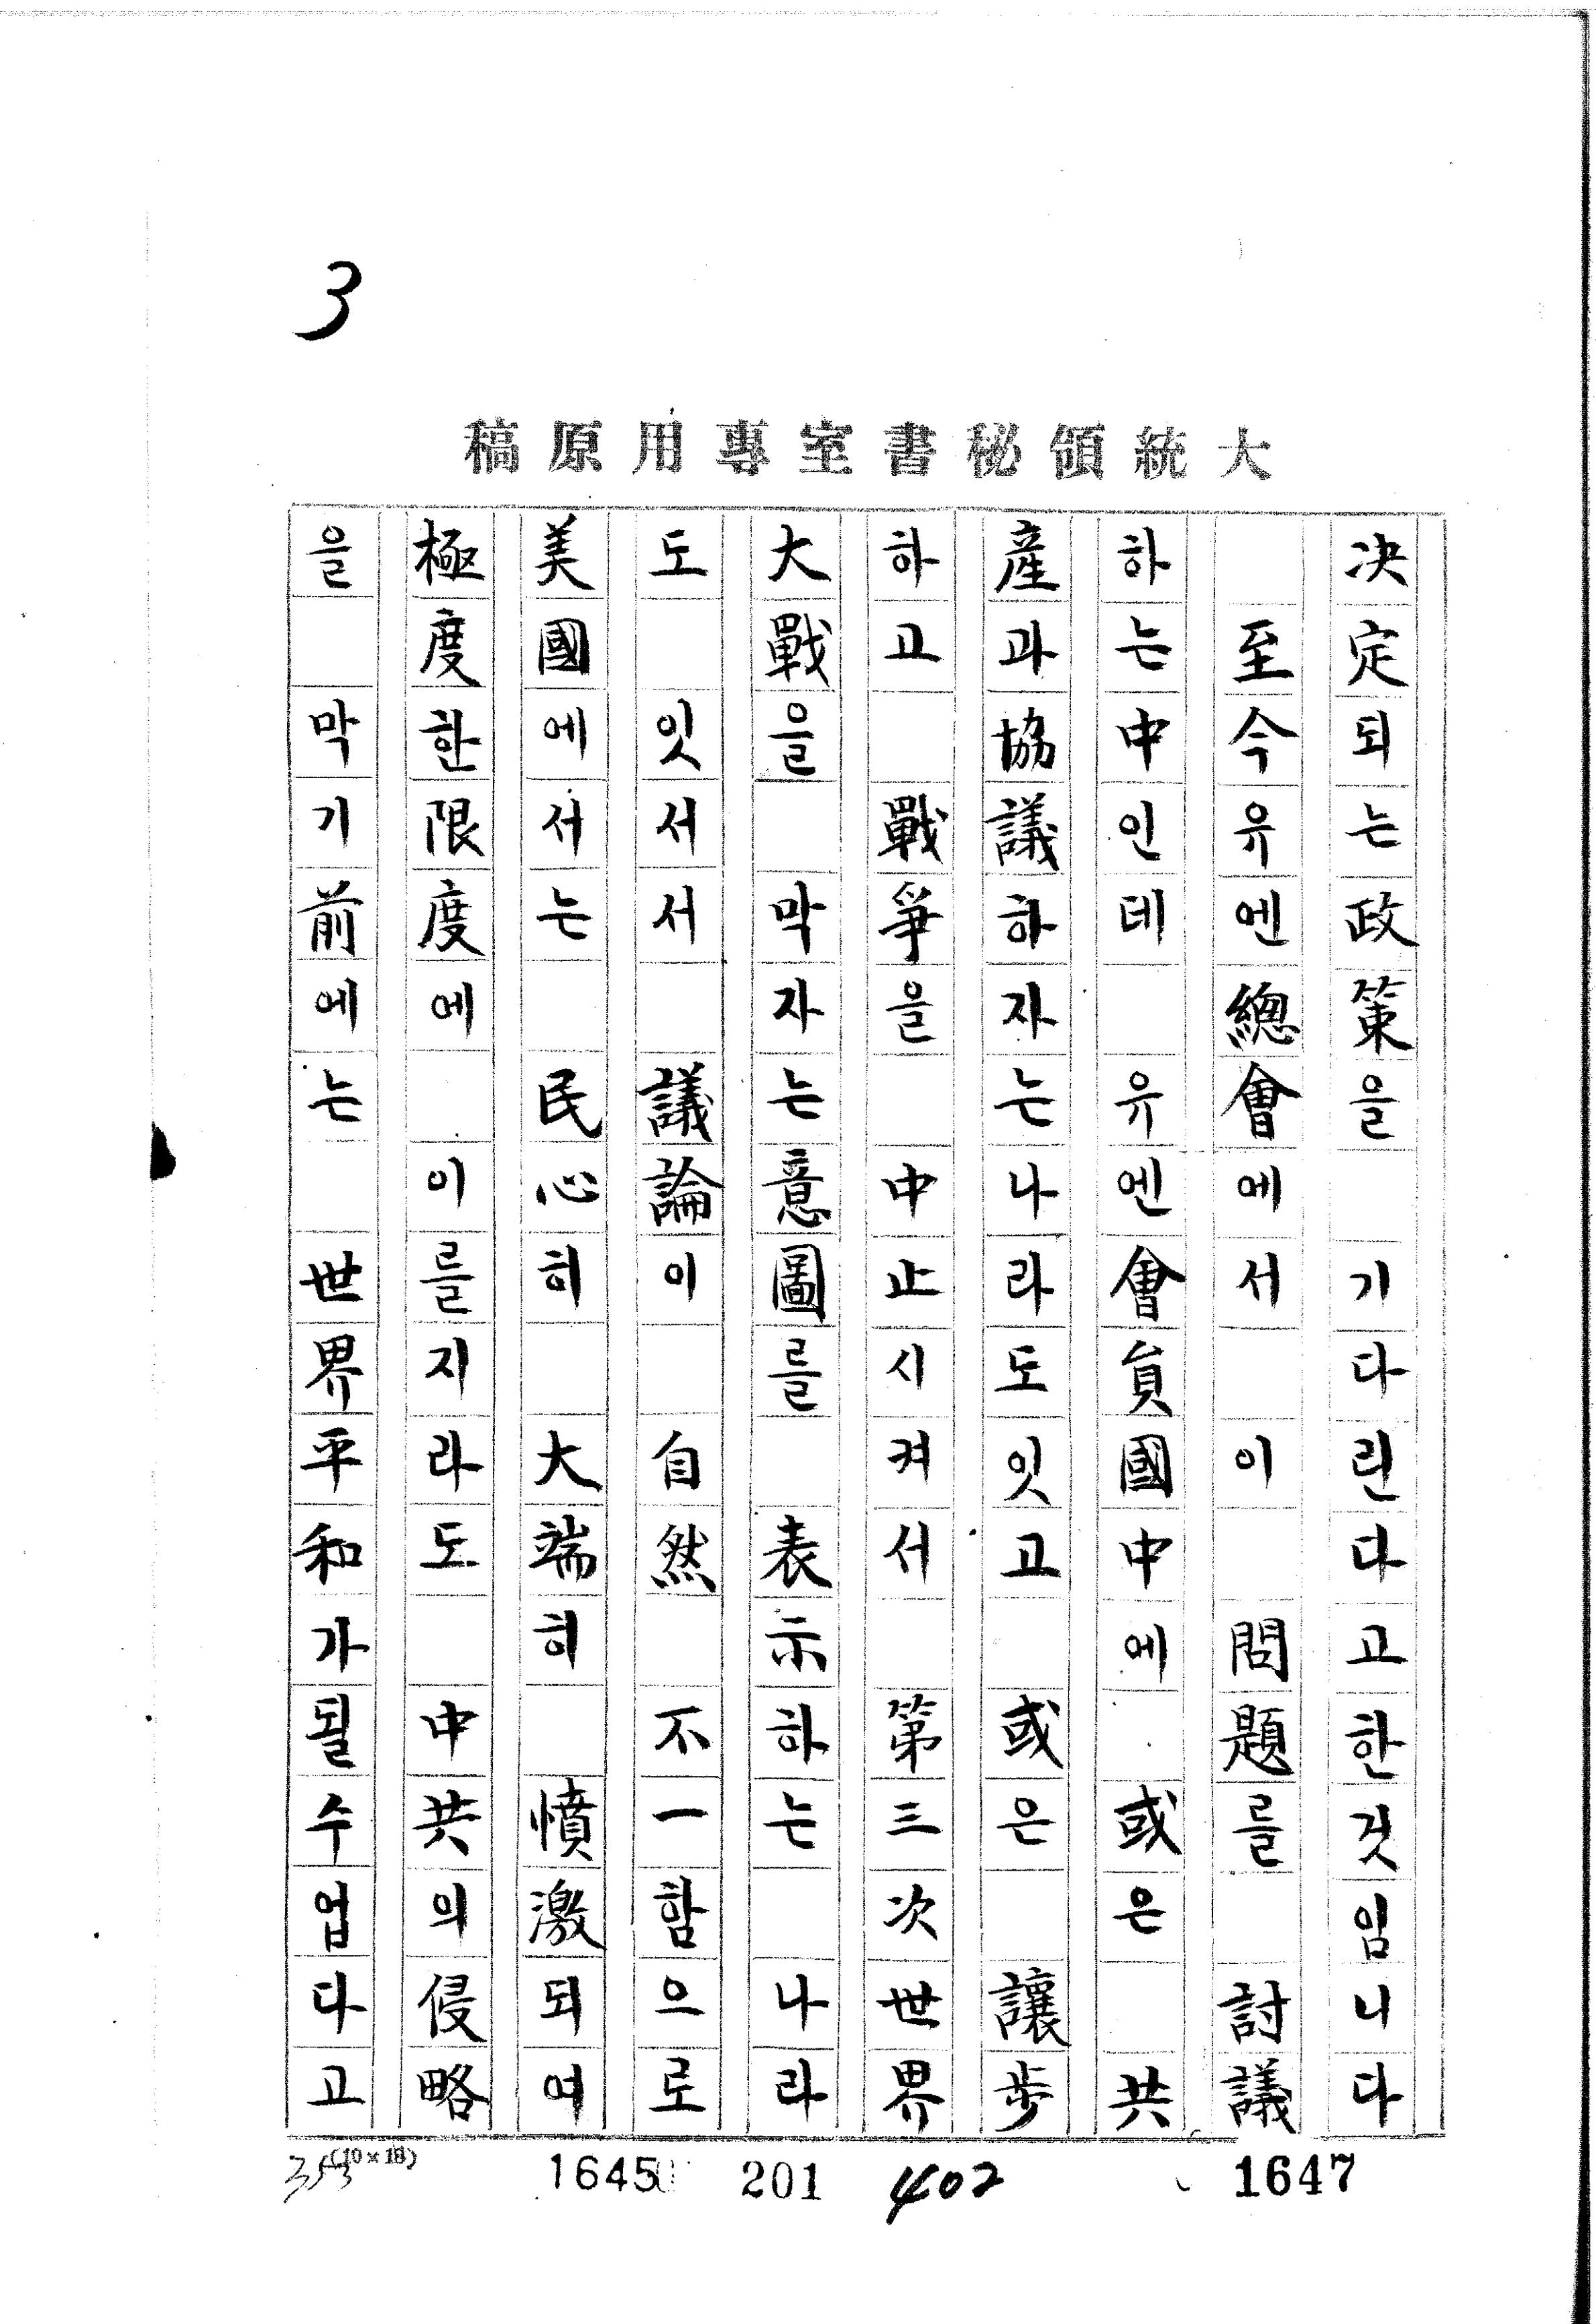 3
大統領秘書室專用原稿
決定되는政策을 기다린다고한것임니다
至今유엔總會에서 이 問題를 討議
하는中인데 유엔會員國中에 或은 共
産과協議하자는나라도잇고 或은 讓步
하고 戰爭을 中止시켜서 第三次世界
大戰을 막자는意圖를 表示하는 나라
도 잇서서 議論이 自然 不一함으로
美國에서는 民心히 大端히 憤激되여
極度한限度에 이를지라도 中共의侵略
을 막기前에는 世界平和가될수업다고
(10×18)
353 1645 201 402 1647